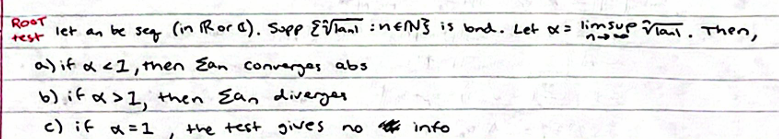 ROOT test let an be seq (in ℝ or ℂ). Supp {ⁿ√|an| : n∈ℕ} is bnd. Let α = limsup n→∞ ⁿ√|an|. Then,
a) if α < 1, then Σan converges abs
b) if α > 1, then Σan diverges
c) if α = 1, the test gives no info